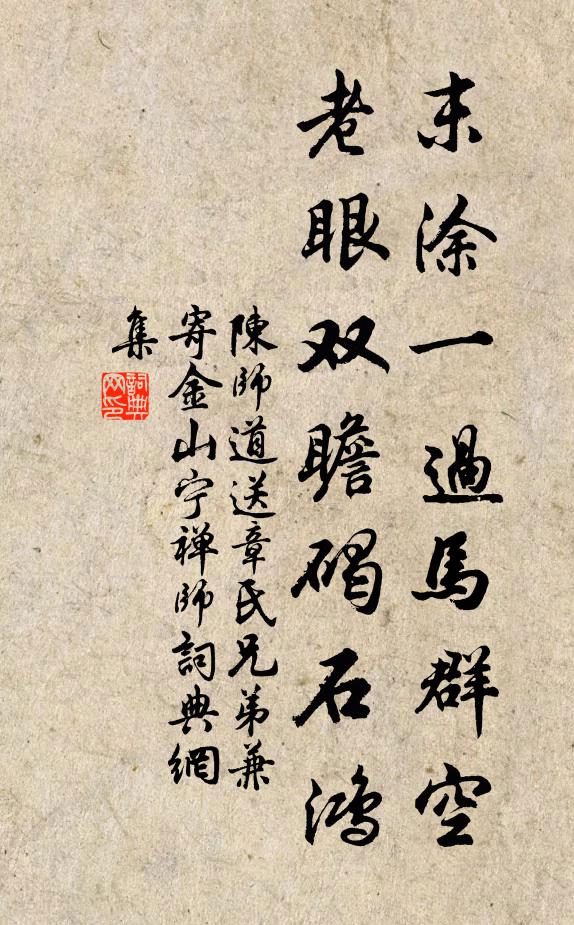 末涂一過馬群空
老眼双瞻碣石鴻
陳師道送章氏兄弟兼
寄金山宁禅師詞典網
集
詞典
网印